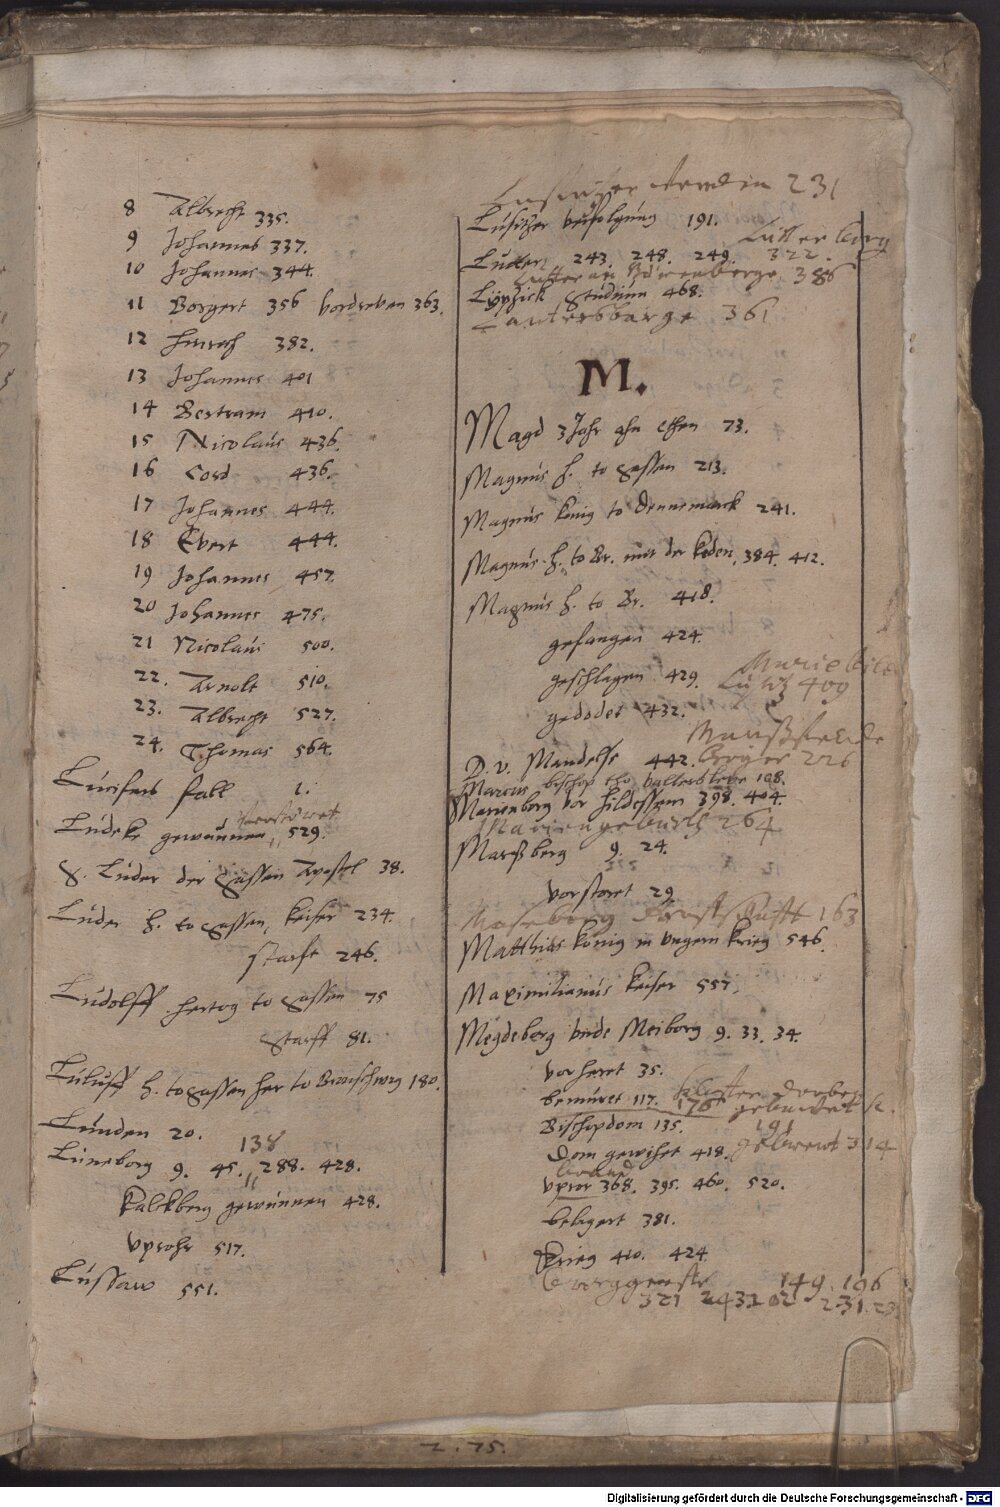 8 Albrecht 335.
9 Johannes 337.
10 Johannes 344.
11 Borgert 356 vordreven 363.
12 Hinrich 382.
13 Johannes 401
14 Bertram 410.
15 Nicolaus 436.
16 Cord 436.
17 Johannes 444.
18 Evert 444.
19 Johannes 457.
20 Johannes 475.
21 Nicolaus 500.
22. Arnolt 510.
23. Albrecht 527.
24. Thomas 564.
Lucifers fall 1.
Ludeke gewunnen 529.
S. Luder der Sassen Apostel 38.
Luder h. to Sassen, keiser 234.
starft 246.
Ludolff hertog to Sassen 75
Starff 81.
Luluff h. to Sassen her to Brunschwig 180.
Lunden 20.
138
Luneborg 9. 45. 288. 428.
Kalckberg gewunnen 428.
Uprohr 517.
Lussow 551.
231
Lusitzer verfolgung 191.
Lutter borg
Lutter 243. 248. 249. 322.
386
Lypzick Studium 468.
361
M.
Magd 3 Jahr ahn ethen 73.
Magnus h. to Sassen 213.
Magnus König to Dennemarck 241.
Magnus h. to Br. mit der keden, 384. 412.
Magnus h. to Br. 418.
gefangen 424.
geschlagen 429
409
gedodet 432.
D. v. Mandelse 442.
226
Marcus bischop tho 108.
Marienborg vor Hildessem 398. 404.
264
Marßberg 9. 24.
vorstoret 29
163
Matthias König in Ungern krieg 546.
Maximilianus keiser 557.
Megdeberg unde Meiborg 9. 33. 34.
vorheret 35.
bemuret 117. 176
Bischopdom 135. 191
Dom gewihet 418. 314
Upror 368. 395. 460. 520.
belegert 381.
Krieg 410. 424
149. 196
321 231. 23
2. 75.
Digitalisierung gefördert durch die Deutsche Forschungsgemeinschaft - DFG